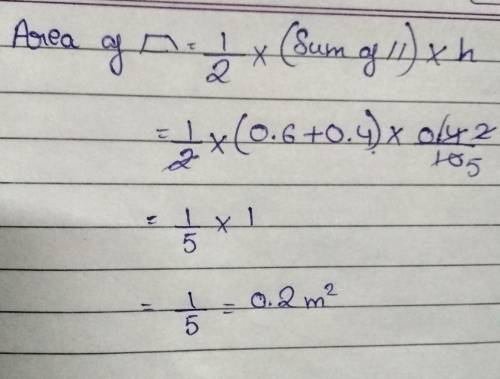 Area of ⏢ = 1/2 × (Sum of ||) × h
= 1/2 × (0.6 + 0.4) × 0.4 2/10 5
= 1/5 × 1
= 1/5 = 0.2 m²